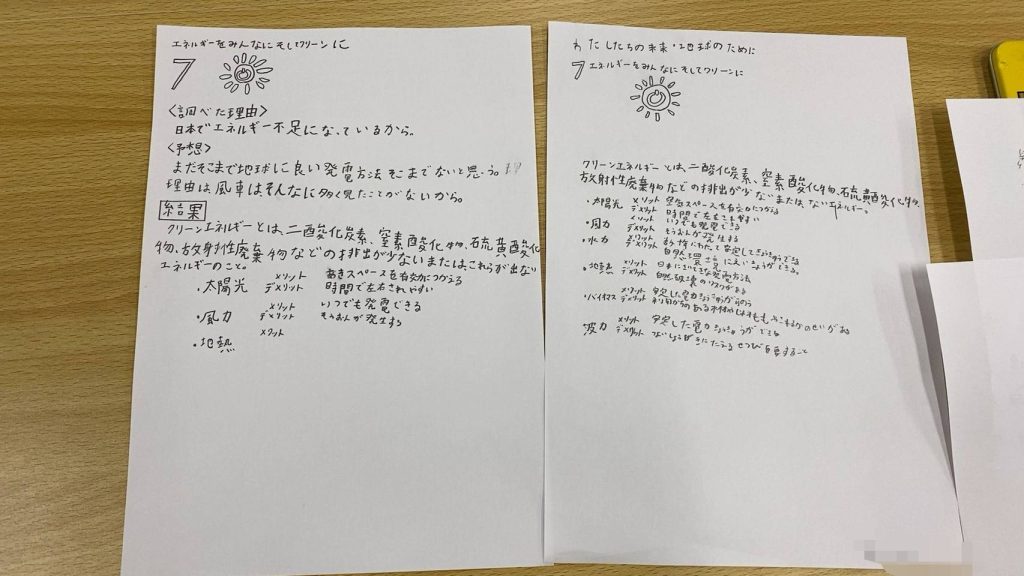 エネルギーをみんなに そしてクリーンに
7
<調べた理由>
日本でエネルギー不足になっているから。
<予想>
まだそこまで地球に良い発電方法そこまでないと思う。
理由は風車はそんなに多く見たことがないから。
結果
クリーンエネルギーとは、二酸化炭素、窒素酸化物、石硫黄酸化
物、放射性廃棄物などの排出が少ないまたはこれらが出ない
エネルギーのこと。
・太陽光 メリット あきスペースを有効につかえる
デメリット 時間で左右されやすい
・風力 メリット いつでも発電できる
デメリット そうおんが発生する
・地熱 メリット
わたしたちの未来・地球のために
7 エネルギーをみんなに そしてクリーンに
クリーンエネルギーとは、二酸化炭素、窒素酸化物、石硫黄酸化物、
放射性廃棄物などの排出が少ないまたはないエネルギー。
・太陽光 メリット 空きスペースを有効につかえる
デメリット 時間で左右されやすい
・風力 メリット いつでも発電できる
デメリット そうおんが発生する
・水力 メリット
デメリット 自然環境に
・地熱 メリット 日本にできな発電方法
デメリット 自然破壊のリスクがある
・バイオマス メリット 安定した電力
デメリット
・波力 メリット 安定した電力 ができる
デメリット にたえるせつび